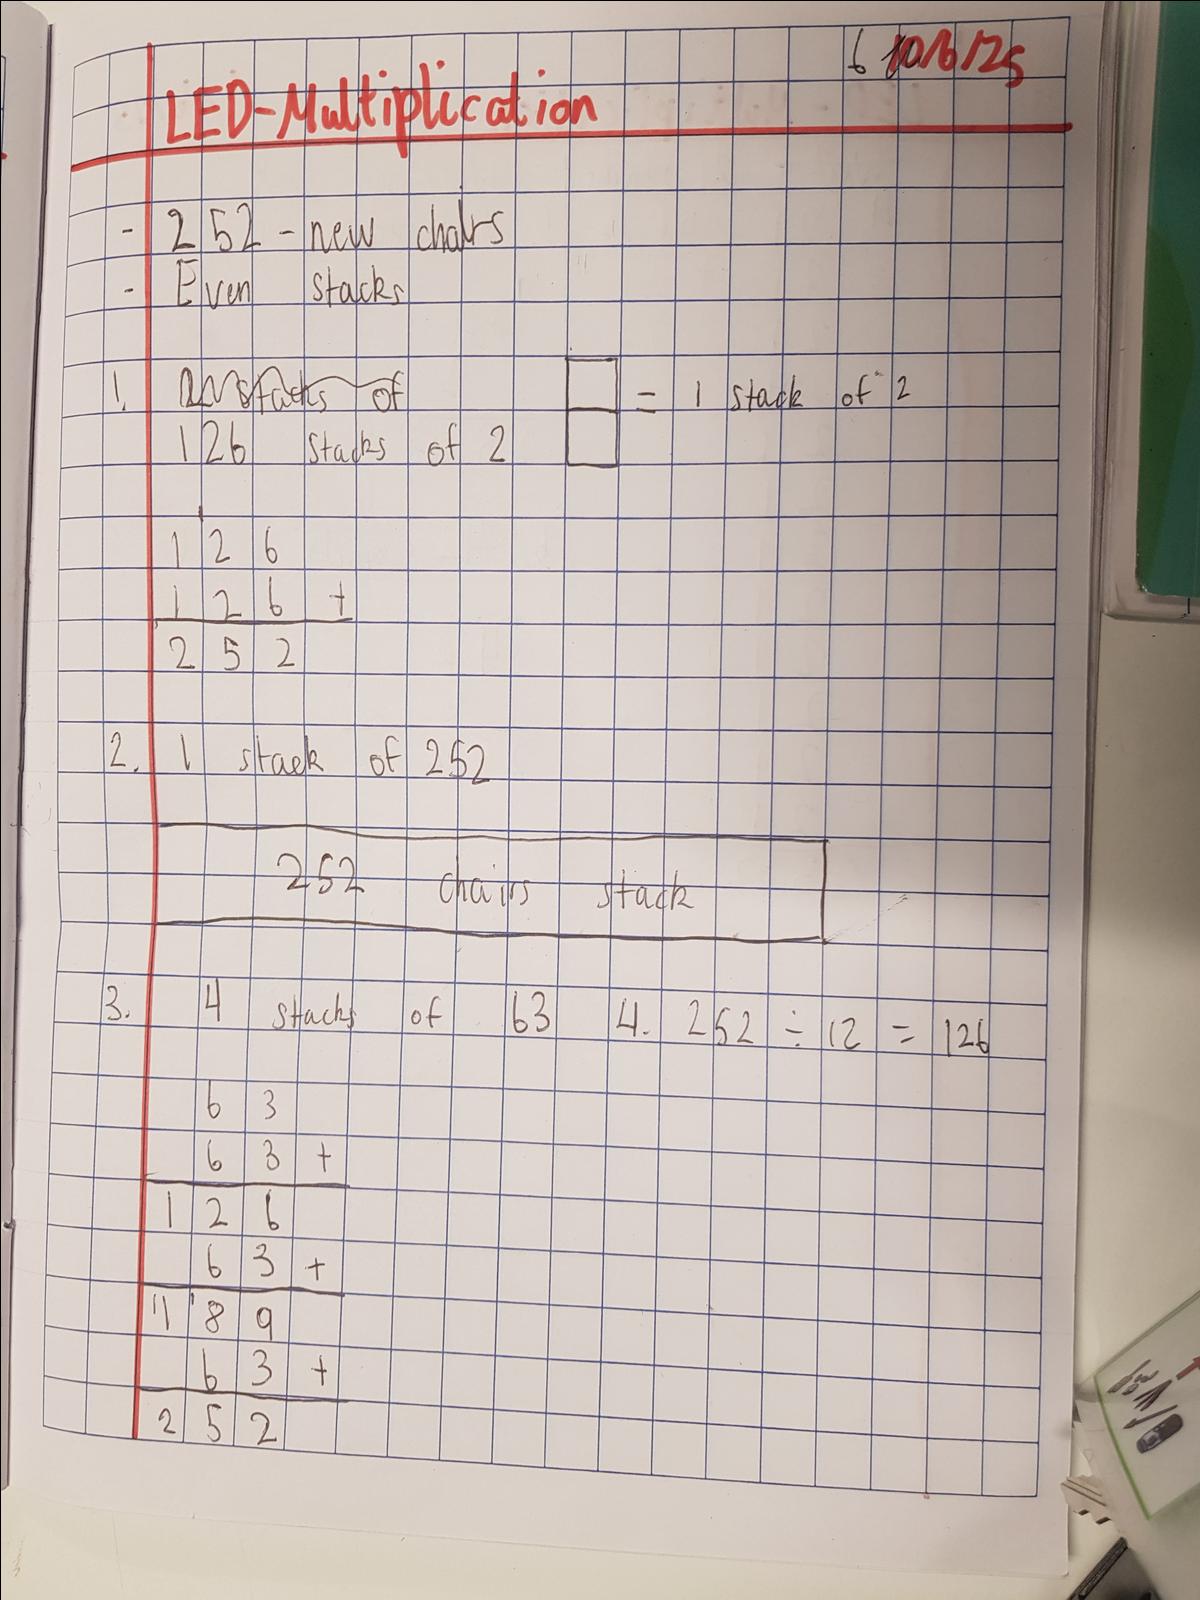 6 10/6/25
LED-Multiplication
- 252 - new chairs
- Even stacks
1. stacks of
126 stacks of 2
= 1 stack of 2
1
1 2 6
1 2 6 +
2 5 2
2. 1 stack of 252
252 chairs stack
3. 4 stacks of 63
4. 252 ÷ 12 = 126
6 3
6 3 +
1 2 6
6 3 +
1 1 1 8 9
6 3 +
2 5 2